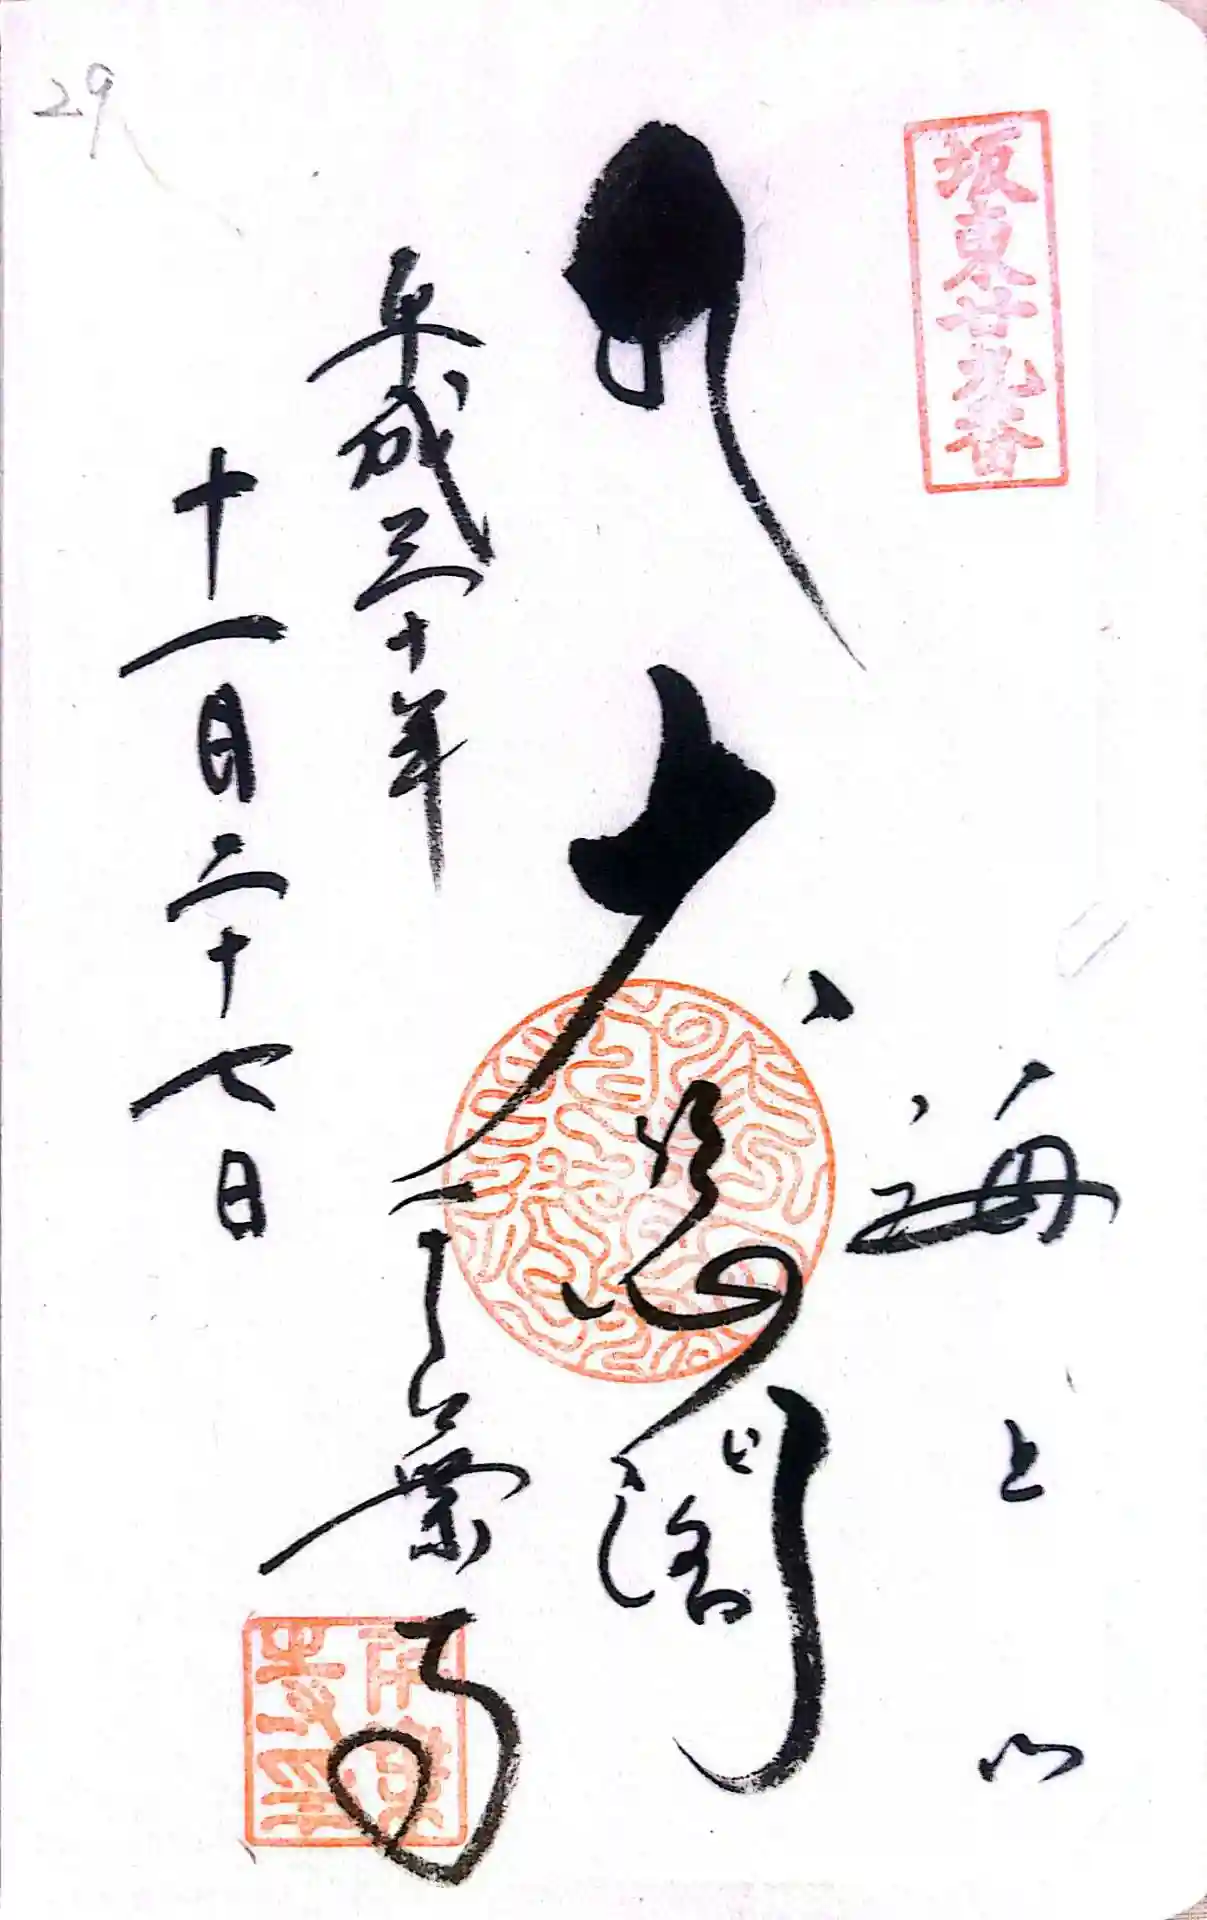 坂東廿九番
海上山
大悲閣
千葉寺
平成三十年
十一月二十七日
29